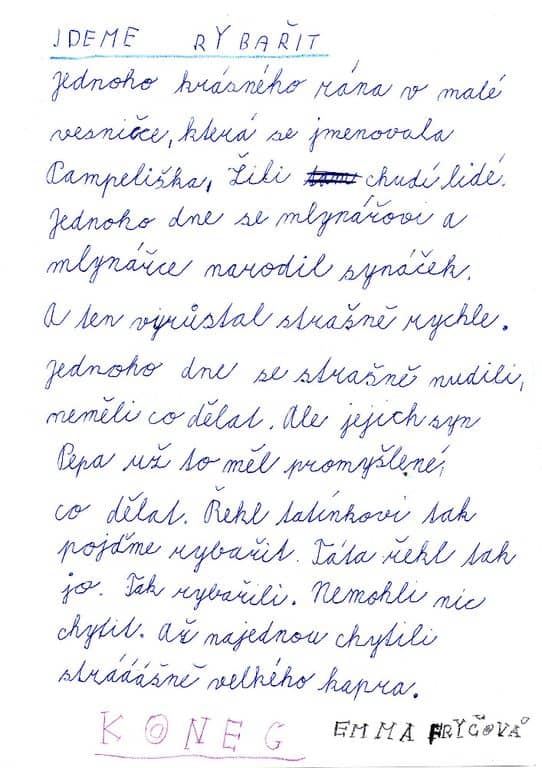 JDEME RYBAŘIT
Jednoho krásného rána v malé
vesničce, která se jmenovala
Pampeliška, Žili chudí lidé.
Jednoho dne se mlynářovi a
mlynářce narodil synáček.
A ten vyrůstal strašně rychle.
Jednoho dne se strašně nudili,
neměli co dělat. Ale jejich syn
Pepa už to měl promyšlené,
co dělat. Řekl tatínkovi tak
pojďme rybařit. Táta řekl tak
jo. Tak rybařili. Nemohli nic
chytit. Až najednou chytili
strááášně velkého kapra.
KONEG EMMA FRYČOVÁ